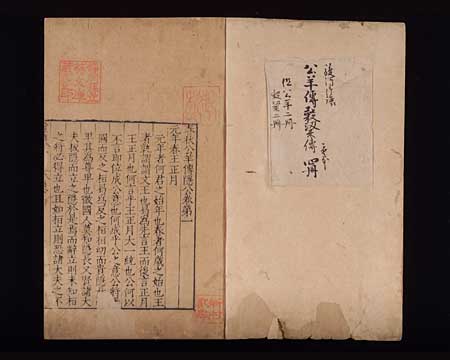 公羊傳穀梁傳 四冊
公羊二冊
穀梁二冊
春秋公羊傳隱公卷第一
元年春王正月
元年者何君之始年也春者何歲之始也王
者孰謂謂文王也曷為先言王而後言正月
王正月也何言乎王正月大一統也公何以
不言即位成公意也何成乎公之意公將平
國而反之桓曷為反之桓桓幼而貴隱長而
卑其為尊卑也微國人莫知隱長又賢諸大
夫扳隱而立之隱於是焉而辭立則未知桓
之將必得立也且如桓立則恐諸大夫之不